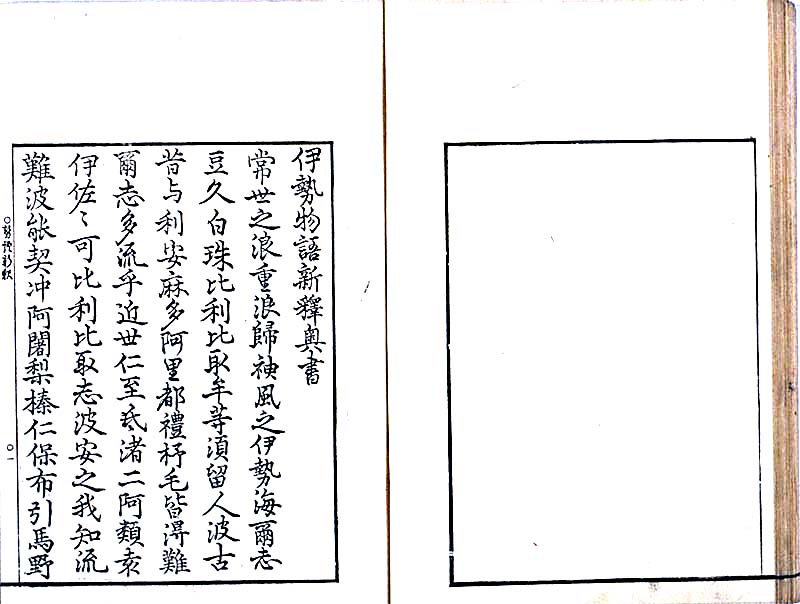 伊勢物語新釋奥書
常世之浪重浪歸神風之伊勢海爾志
豆久白珠比利比取牟等須留人波古
昔与利安麻多阿里都禮杼毛皆得難
爾志多流乎近世仁至弖渚二阿類袁
伊佐〻可比利比取志波安之我知流
難波能契冲阿闍梨榛仁保布引馬野
○勢語新釈
○一